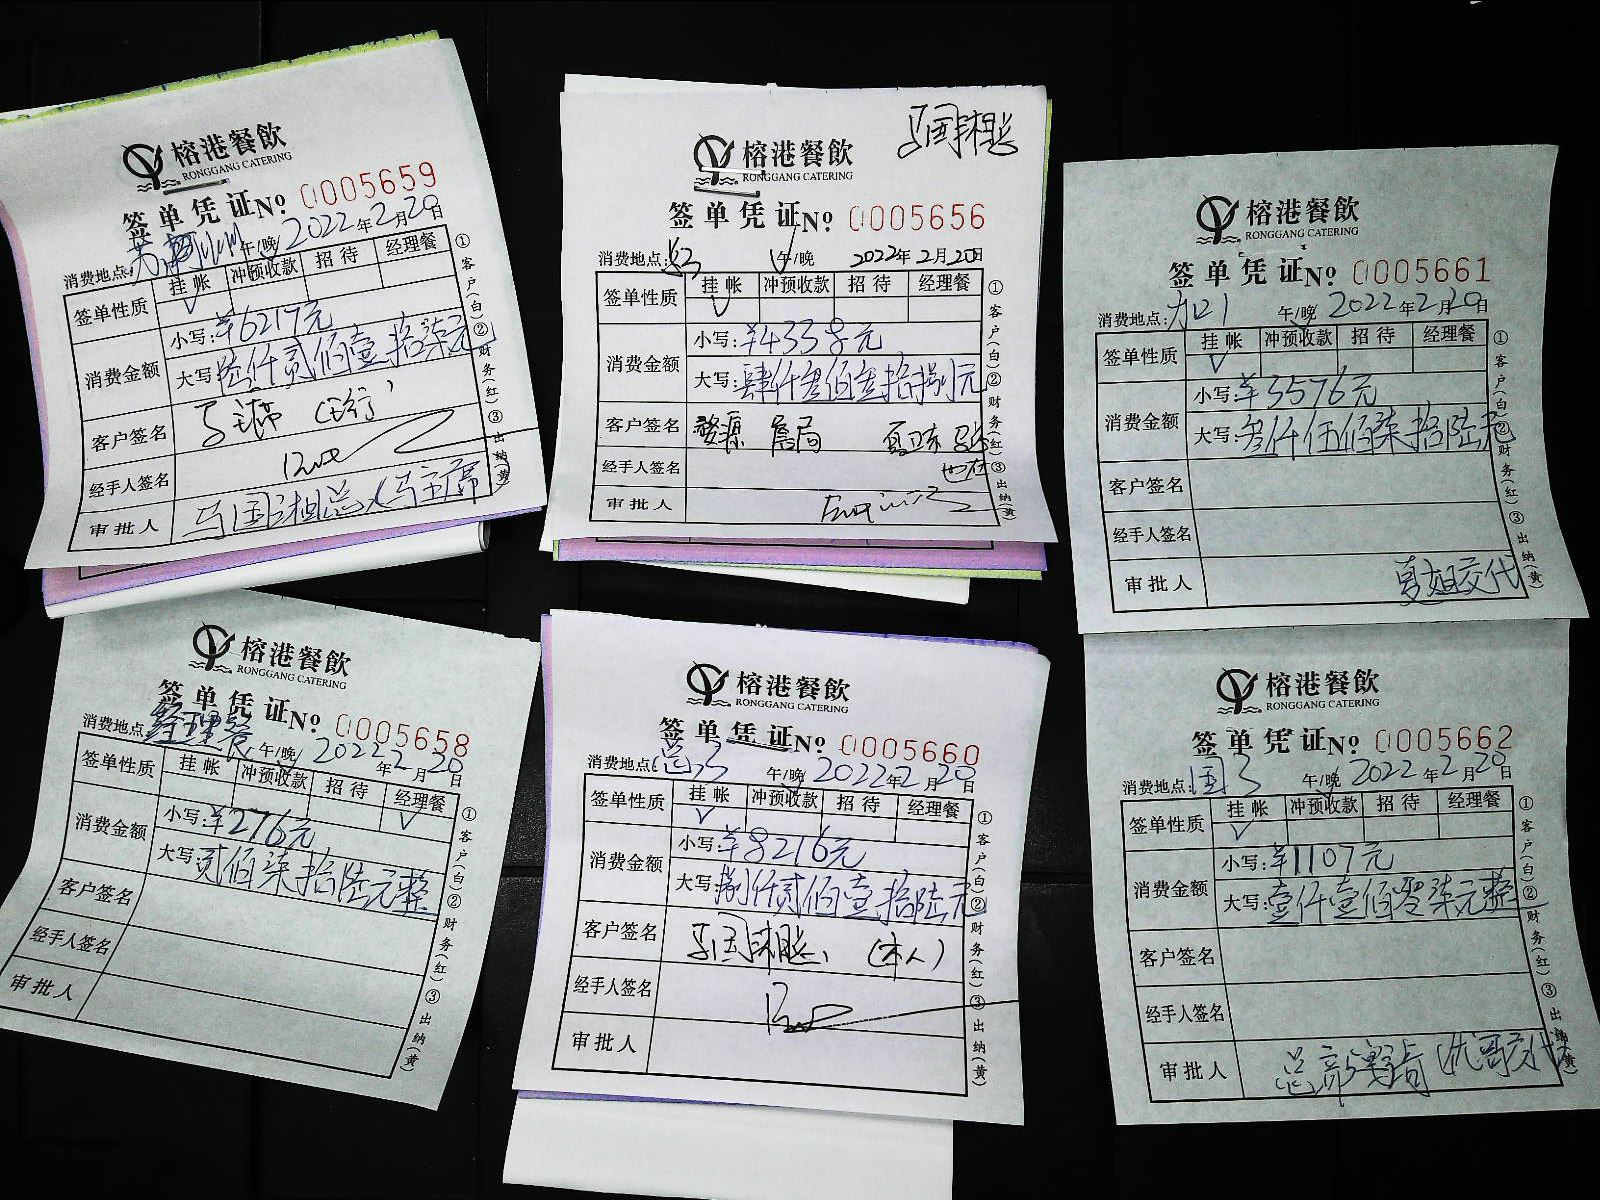 榕港餐飲
RONGGANG CATERING
签单凭证 № 0005659
消费地点: 午/晚 2022年2月20日
签单性质 挂帐 冲预收款 招待 经理餐
✓
消费金额 小写:¥6217元
大写:陆仟贰佰壹拾柒元
客户签名 马主席
经手人签名
审批人 马国湘总(马主席
①客户(白)②财务(红)③出纳(黄)
马国湘总
榕港餐飲
RONGGANG CATERING
签单凭证 № 0005656
消费地点: 午/晚 2022年2月20日
签单性质 挂帐 冲预收款 招待 经理餐
✓
消费金额 小写:¥4338元
大写:肆仟叁佰叁拾捌元
客户签名 婺源 詹局
经手人签名
审批人
①客户(白)②财务(红)③出纳(黄)
榕港餐飲
RONGGANG CATERING
签单凭证 № 0005661
消费地点: 午/晚 2022年2月20日
签单性质 挂帐 冲预收款 招待 经理餐
✓
消费金额 小写:¥3576元
大写:叁仟伍佰柒拾陆元
客户签名
经手人签名
审批人 夏姐交代
①客户(白)②财务(红)③出纳(黄)
榕港餐飲
RONGGANG CATERING
签单凭证 № 0005658
消费地点:经理餐 午/晚 2022年2月20日
签单性质 挂帐 冲预收款 招待 经理餐
✓
消费金额 小写:¥276元
大写:贰佰柒拾陆元整
客户签名
经手人签名
审批人
①客户(白)②财务(红)③出纳(黄)
榕港餐飲
RONGGANG CATERING
签单凭证 № 0005660
消费地点: 午/晚 2022年2月20日
签单性质 挂帐 冲预收款 招待 经理餐
✓
消费金额 小写:¥8216元
大写:捌仟贰佰壹拾陆元
客户签名 马国湘总、(本人)
经手人签名
审批人
①客户(白)②财务(红)③出纳(黄)
榕港餐飲
RONGGANG CATERING
签单凭证 № 0005662
消费地点: 午/晚 2022年2月20日
签单性质 挂帐 冲预收款 招待 经理餐
✓
消费金额 小写:¥1107元
大写:壹仟壹佰零柒元整
客户签名
经手人签名
审批人 总部
①客户(白)②财务(红)③出纳(黄)